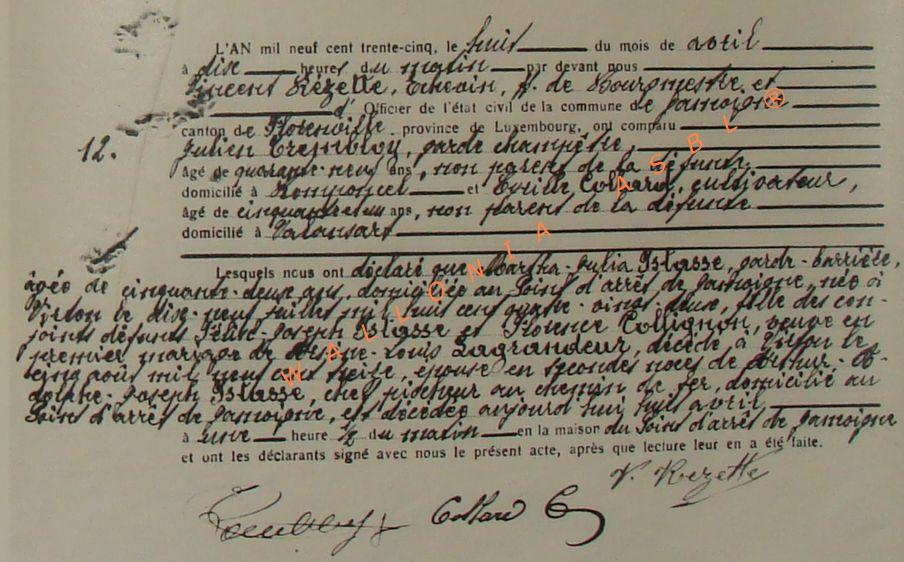 L'AN mil neuf cent trente-cinq, le huit du mois de avril
à dix heures du matin par devant nous
Vincent Rézette, Echevin, ff. de Bourgmestre, et
d' Officier de l'état civil de la commune de Jamoigne
canton de Florenville, province de Luxembourg, ont comparu
12. Julien Trembloy, garde champêtre,
âgé de quarante-neuf ans, non parent de la défunte,
domicilié à et Emile Collard, cultivateur,
âgé de cinquante et un ans, non parent de la défunte
domicilié à Valansart
Lesquels nous ont déclaré que Martha-Julia Blasse, garde-barrière,
âgée de cinquante-deux ans, domiciliée au Point d'arrêt de Jamoigne, née à
Virton le dix-neuf juillet mil huit cent quatre-vingt-deux, fille des con-
joints défunts Joseph Blasse et Florence Collignon, veuve en
premier mariage de Louis Lagrandeur, décédé à Virton le
cinq août mil neuf cent seize, épouse en secondes noces de Arthur-
Joseph Blasse, chef piocheur au chemin de fer, domicilié au
Point d'arrêt de Jamoigne, est décédée aujourd'hui huit avril
à une heure ½ du matin en la maison du Point d'arrêt de Jamoigne
et ont les déclarants signé avec nous le présent acte, après que lecture leur en a été faite.
V. Rezette
Collard E
WALLONIA ASBL ®